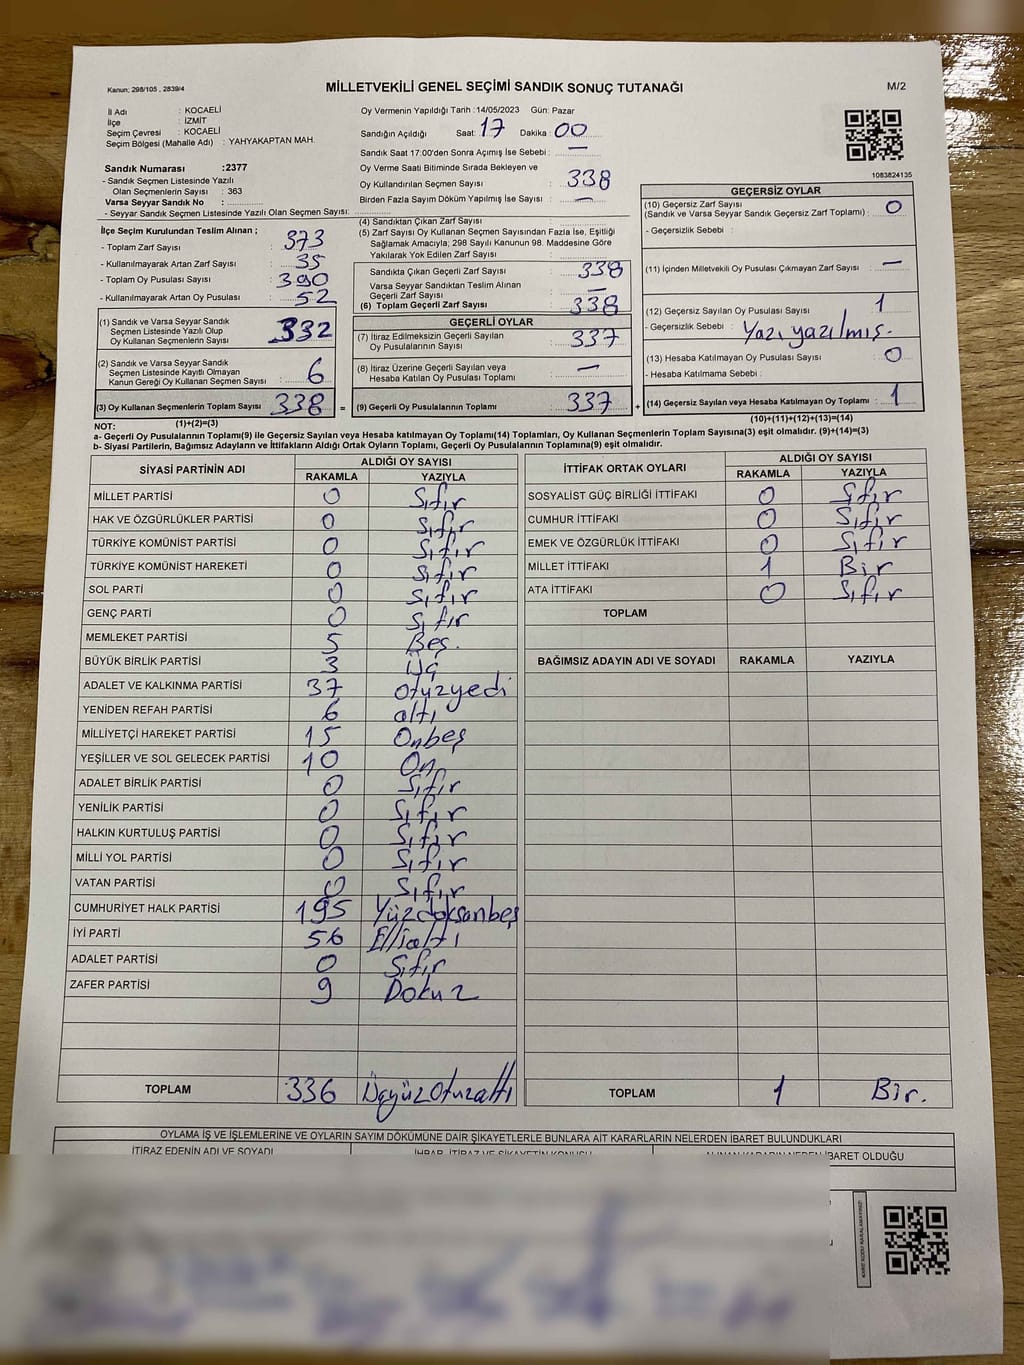 Kanun; 298/105 , 2839/4
MİLLETVEKİLİ GENEL SEÇİMİ SANDIK SONUÇ TUTANAĞI
M/2
İl Adı : KOCAELİ
İlçe : İZMİT
Seçim Çevresi : KOCAELİ
Seçim Bölgesi (Mahalle Adı) : YAHYAKAPTAN MAH.
Oy Vermenin Yapıldığı Tarih : 14/05/2023 Gün: Pazar
Sandığın Açıldığı Saat: 17 Dakika : 00
Sandık Saat 17:00'den Sonra Açmış İse Sebebi : —
1083824135
Sandık Numarası :2377
- Sandık Seçmen Listesinde Yazılı
Olan Seçmenlerin Sayısı : 363
Varsa Seyyar Sandık No :
- Seyyar Sandık Seçmen Listesinde Yazılı Olan Seçmen Sayısı:
Oy Verme Saati Bitiminde Sırada Bekleyen ve
Oy Kullandırılan Seçmen Sayısı : 338
Birden Fazla Sayım Döküm Yapılmış İse Sayısı : —
İlçe Seçim Kurulundan Teslim Alınan ;
- Toplam Zarf Sayısı : 373
- Kullanılmayarak Artan Zarf Sayısı : 35
- Toplam Oy Pusulası Sayısı : 390
- Kullanılmayarak Artan Oy Pusulası : 52
(1) Sandık ve Varsa Seyyar Sandık
Seçmen Listesinde Yazılı Olup
Oy Kullanan Seçmenlerin Sayısı : 332
(2) Sandık ve Varsa Seyyar Sandık
Seçmen Listesinde Kayıtlı Olmayan
Kanun Gereği Oy Kullanan Seçmen Sayısı : 6
(3) Oy Kullanan Seçmenlerin Toplam Sayısı : 338 =
(1)+(2)=(3)
(4) Sandıktan Çıkan Zarf Sayısı :
(5) Zarf Sayısı Oy Kullanan Seçmen Sayısından Fazla İse, Eşitliği
Sağlamak Amacıyla; 298 Sayılı Kanunun 98. Maddesine Göre
Yakılarak Yok Edilen Zarf Sayısı :
Sandıkta Çıkan Geçerli Zarf Sayısı : 338
Varsa Seyyar Sandıktan Teslim Alınan
Geçerli Zarf Sayısı : —
(6) Toplam Geçerli Zarf Sayısı : 338
GEÇERLİ OYLAR
(7) İtiraz Edilmeksizin Geçerli Sayılan
Oy Pusulalarının Sayısı : 337
(8) İtiraz Üzerine Geçerli Sayılan veya
Hesaba Katılan Oy Pusulası Toplamı : —
(9) Geçerli Oy Pusulalarının Toplamı : 337 +
GEÇERSİZ OYLAR
(10) Geçersiz Zarf Sayısı
(Sandık ve Varsa Seyyar Sandık Geçersiz Zarf Toplamı) : 0
- Geçersizlik Sebebi :
(11) İçinden Milletvekili Oy Pusulası Çıkmayan Zarf Sayısı : —
(12) Geçersiz Sayılan Oy Pusulası Sayısı : 1
- Geçersizlik Sebebi : Yazı yazılmış.
(13) Hesaba Katılmayan Oy Pusulası Sayısı : 0
- Hesaba Katılmama Sebebi :
(14) Geçersiz Sayılan veya Hesaba Katılmayan Oy Toplamı : 1
(10)+(11)+(12)+(13)=(14)
NOT:
a- Geçerli Oy Pusulalarının Toplamı(9) ile Geçersiz Sayılan veya Hesaba katılmayan Oy Toplamı(14) Toplamları, Oy Kullanan Seçmenlerin Toplam Sayısına(3) eşit olmalıdır. (9)+(14)=(3)
b- Siyasi Partilerin, Bağımsız Adayların ve İttifakların Aldığı Ortak Oyların Toplamı, Geçerli Oy Pusulalarının Toplamına(9) eşit olmalıdır.
SİYASİ PARTİNİN ADI ALDIĞI OY SAYISI
RAKAMLA YAZIYLA
MİLLET PARTİSİ 0 Sıfır
HAK VE ÖZGÜRLÜKLER PARTİSİ 0 Sıfır
TÜRKİYE KOMÜNİST PARTİSİ 0 Sıfır
TÜRKİYE KOMÜNİST HAREKETİ 0 Sıfır
SOL PARTİ 0 Sıfır
GENÇ PARTİ 0 Sıfır
MEMLEKET PARTİSİ 5 Beş.
BÜYÜK BİRLİK PARTİSİ 3 Üç
ADALET VE KALKINMA PARTİSİ 37 otuzyedi
YENİDEN REFAH PARTİSİ 6 altı
MİLLİYETÇİ HAREKET PARTİSİ 15 Onbeş
YEŞİLLER VE SOL GELECEK PARTİSİ 10 On
ADALET BİRLİK PARTİSİ 0 Sıfır
YENİLİK PARTİSİ 0 Sıfır
HALKIN KURTULUŞ PARTİSİ 0 Sıfır
MİLLİ YOL PARTİSİ 0 Sıfır
VATAN PARTİSİ 0 Sıfır
CUMHURİYET HALK PARTİSİ 195 Yüzdoksanbeş
İYİ PARTİ 56 Ellialtı
ADALET PARTİSİ 0 Sıfır
ZAFER PARTİSİ 9 Dokuz
TOPLAM 336 Üçyüzotuzaltı
İTTİFAK ORTAK OYLARI ALDIĞI OY SAYISI
RAKAMLA YAZIYLA
SOSYALİST GÜÇ BİRLİĞİ İTTİFAKI 0 Sıfır
CUMHUR İTTİFAKI 0 Sıfır
EMEK VE ÖZGÜRLÜK İTTİFAKI 0 Sıfır
MİLLET İTTİFAKI 1 Bir
ATA İTTİFAKI 0 Sıfır
TOPLAM
BAĞIMSIZ ADAYIN ADI VE SOYADI RAKAMLA YAZIYLA
TOPLAM 1 Bir.
OYLAMA İŞ VE İŞLEMLERİNE VE OYLARIN SAYIM DÖKÜMÜNE DAİR ŞİKAYETLERLE BUNLARA AİT KARARLARIN NELERDEN İBARET BULUNDUKLARI
İTİRAZ EDENİN ADI VE SOYADI İHBAR, İTİRAZ VE ŞİKAYETİN KONUSU ALINAN KARARIN NEDEN İBARET OLDUĞU
KARE KODU KARALAMAYINIZ!